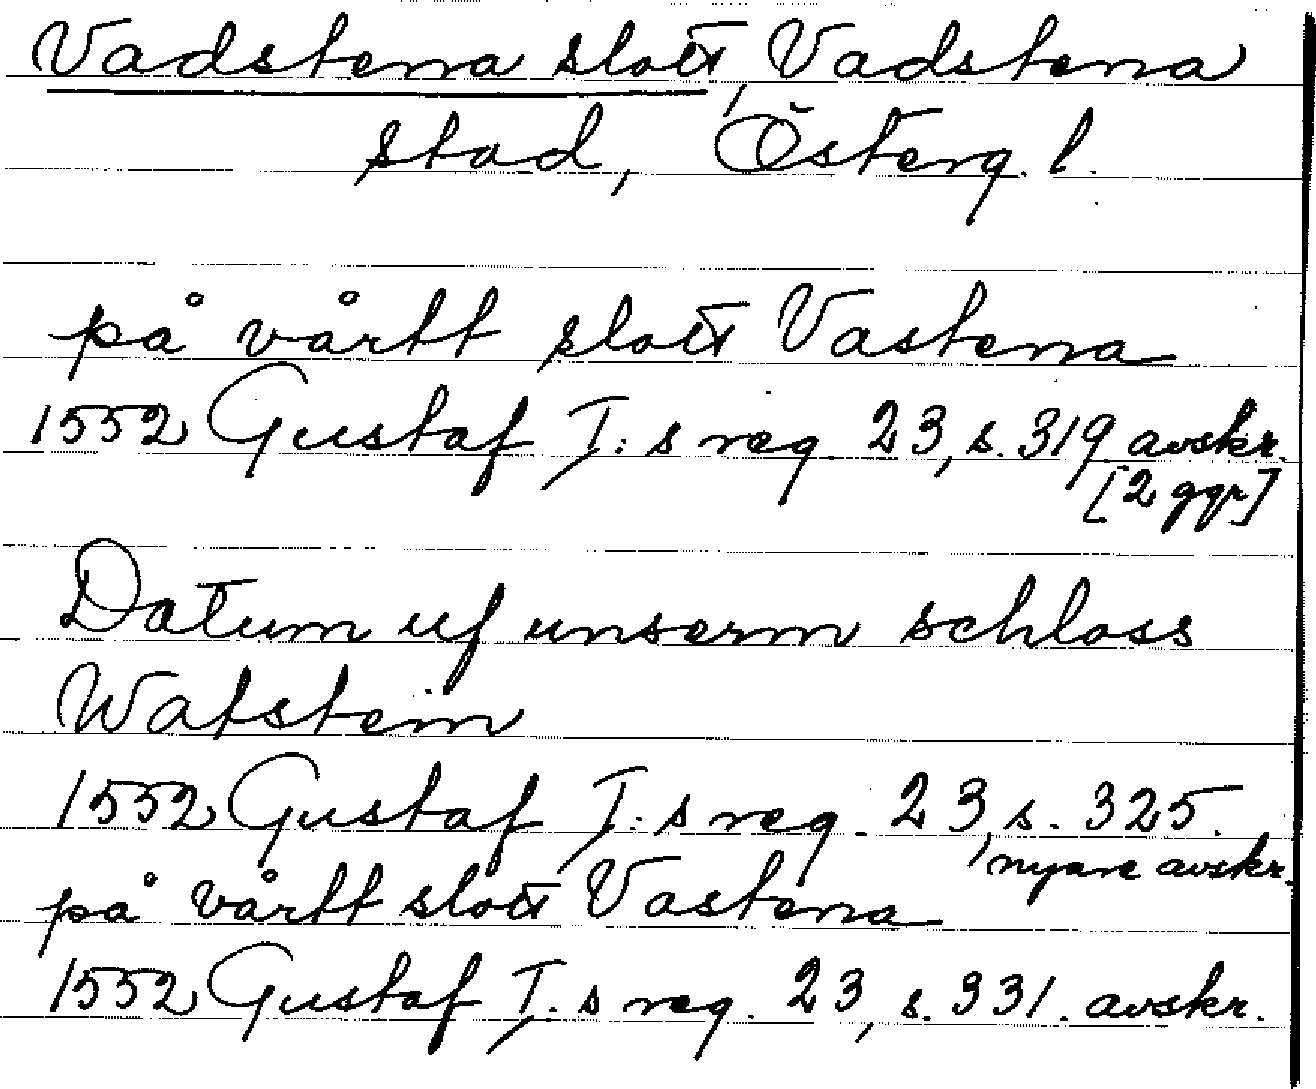 Vadstena slott, Vadstena
stad, Österg.l.
på vårtt slott Vastena
1552 Gustaf I:s reg. 23, s. 319 avskr.
[2 ggr]
Datum uf unserm schloss
Watstein
1552 Gustaf I:s reg. 23, s. 325.
nyare avskr.
på vårtt slott Vastena
1552 Gustaf I:s reg. 23, s. 331. avskr.